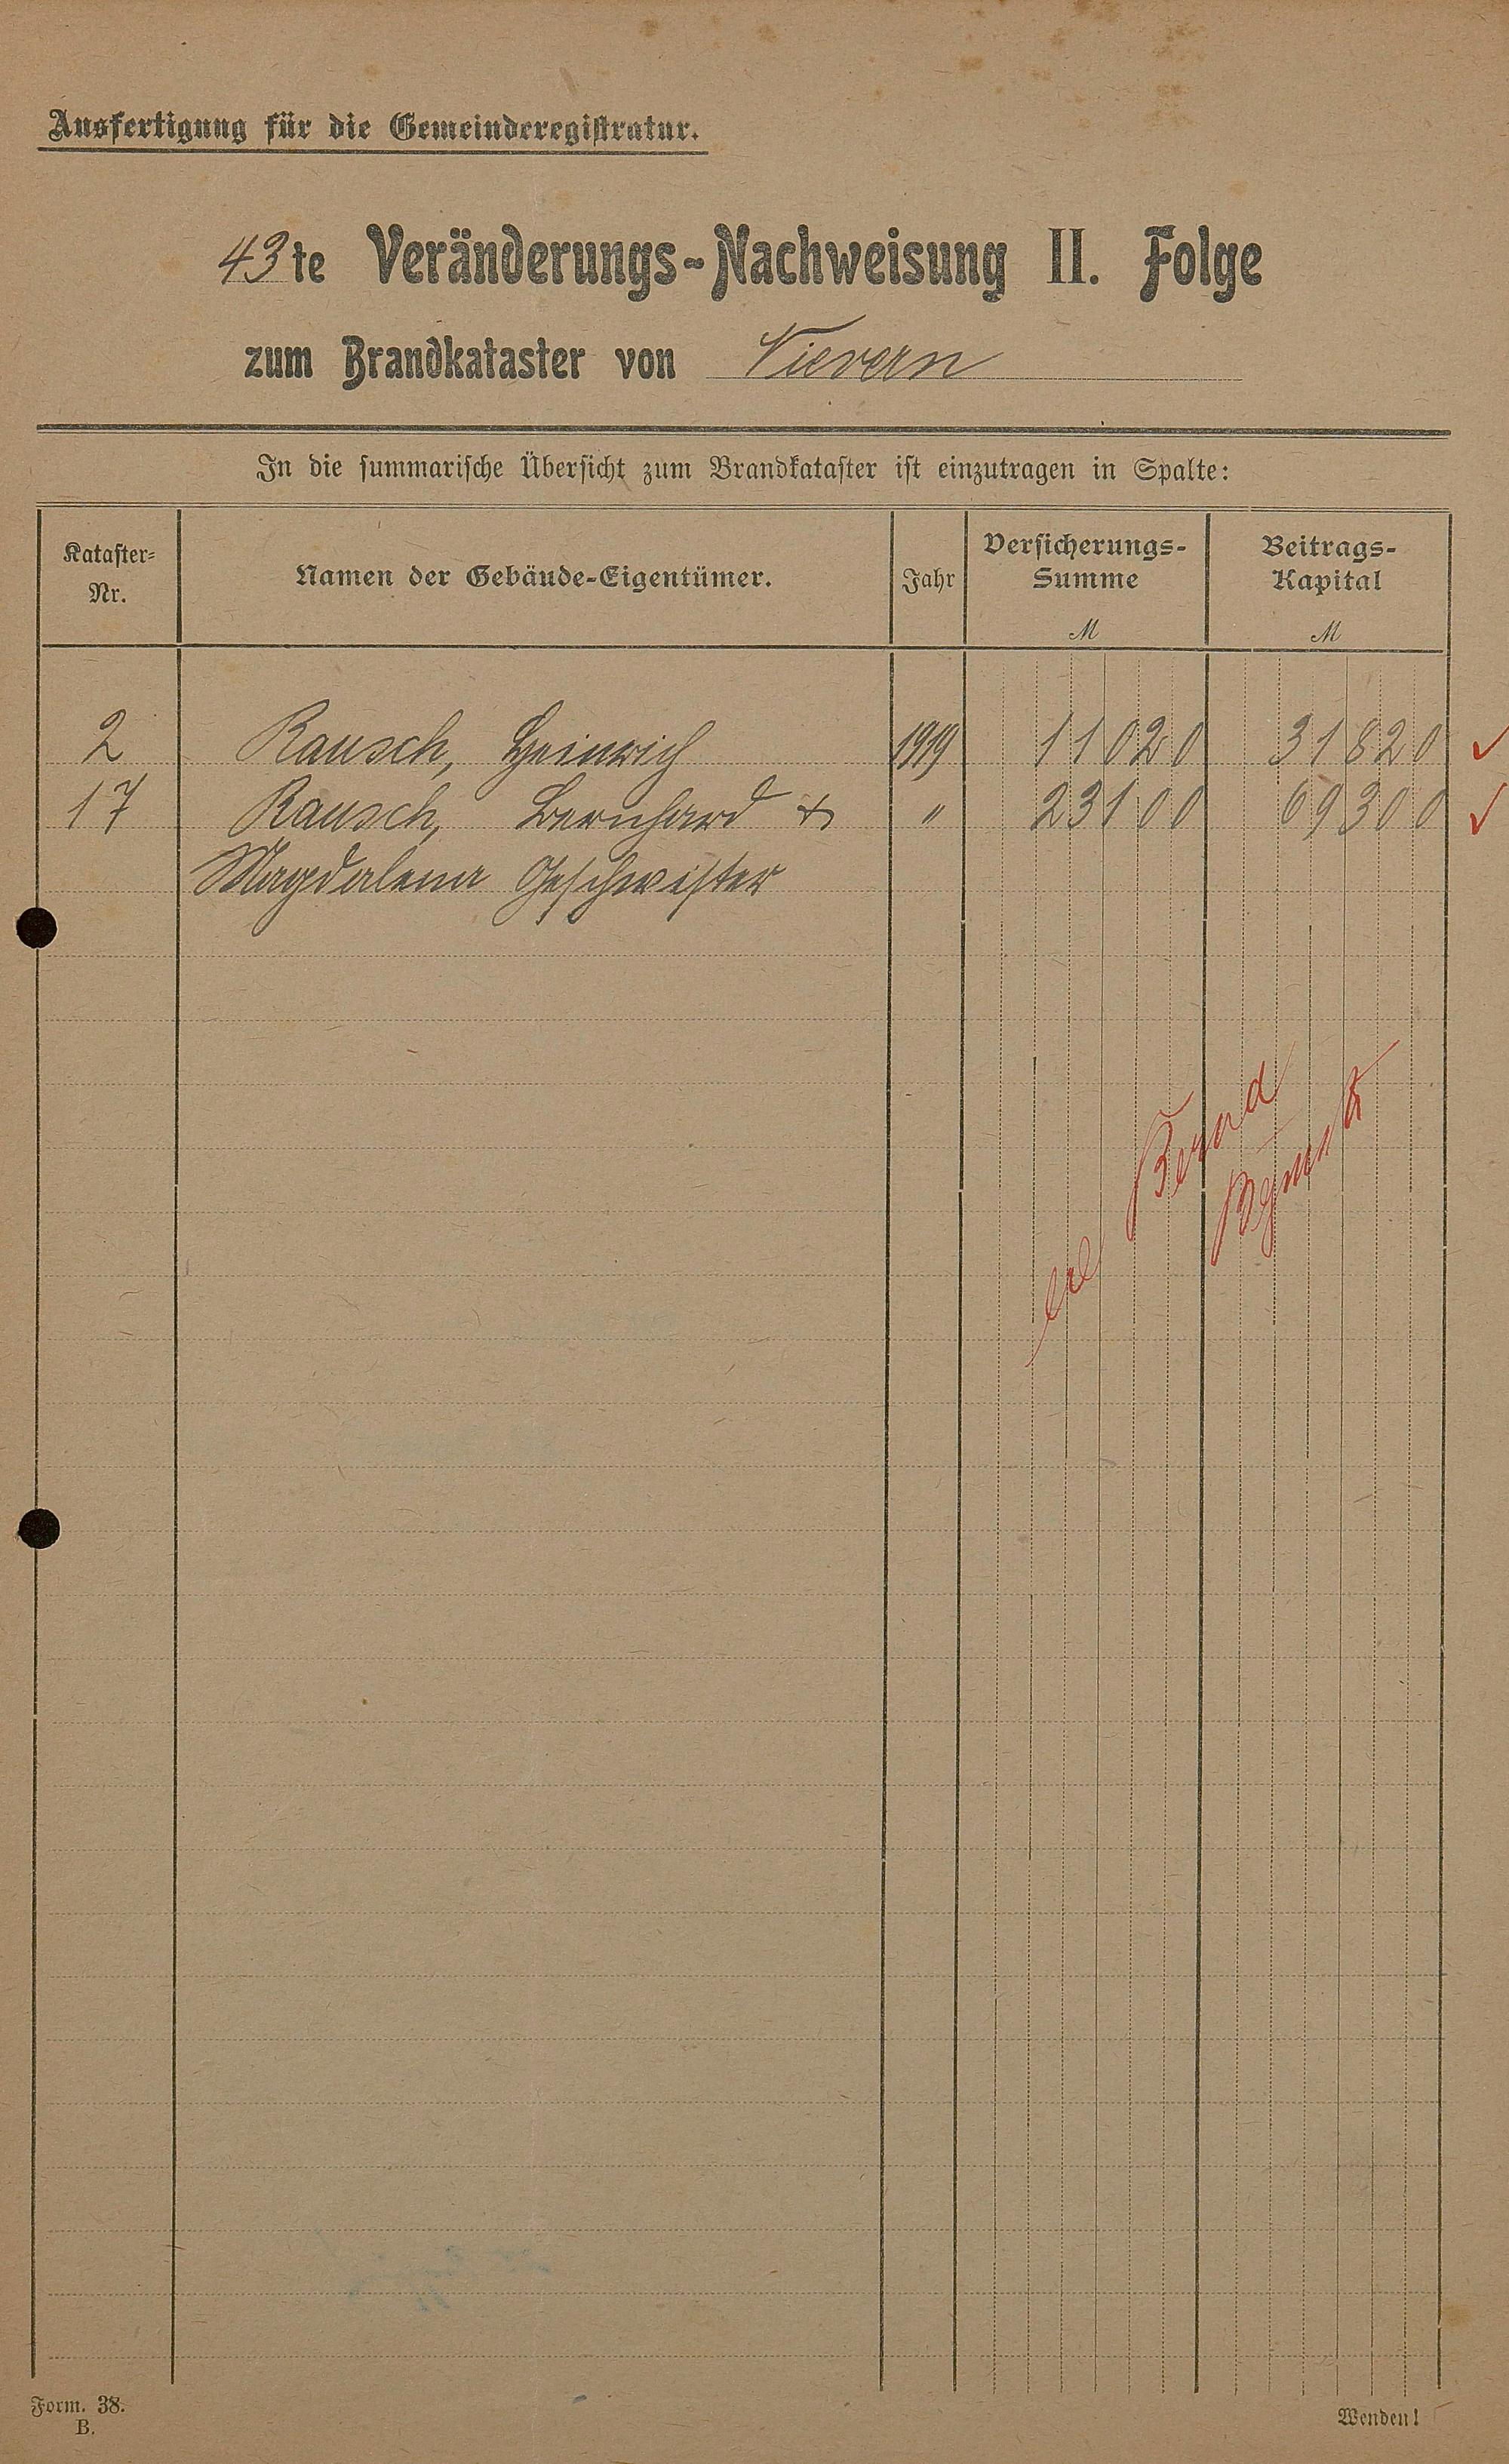 Ausfertigung für die Gemeinderegistratur.
43te Veränderungs-Nachweisung II. Folge
zum Brandkataster von Nievern
In die summarische Übersicht zum Brandkataster ist einzutragen in Spalte:
Kataster-Nr. Namen der Gebäude-Eigentümer. Jahr Versicherungs-Summe M Beitrags-Kapital M
2 Rausch, Heinrich 1919 11020 31820 ✓
17 Rausch, Bernhard & " 23100 69300 ✓
Magdalena Geschwister
erl
Form. 38.
B.
Wenden!